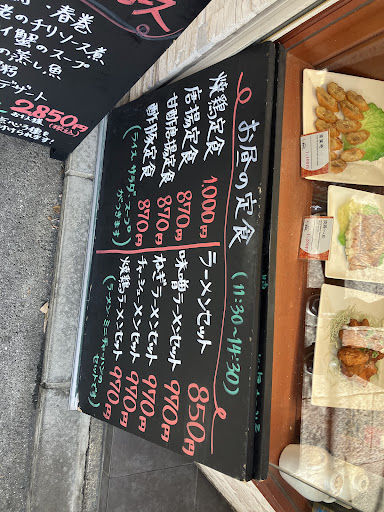 ・春巻
のチリソース煮
蟹のスープ
の蒸し魚
粥
デザート
2,850円(税込)
お昼の定食
(11:30~14:30)
燻鶏定食 1,000円
唐揚定食 870円
甘酢唐揚定食 870円
酢豚定食 870円
(ライス・サラダ・スープがつきます)
ラーメンセット 850円
味噌ラーメンセット 970円
ねぎラーメンセット 970円
チャーシューメンセット 970円
燻鶏ラーメンセット 970円
(ラーメン・ミニチャーハンのセットです)